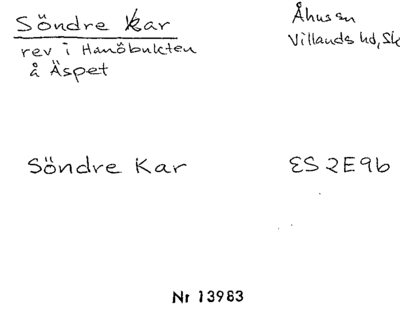 Söndre Kar
rev i Hanöbukten
å Äspet
Åhus sn
Villands hd, Sk
Söndre Kar
ES 2E9b
Nr 13983